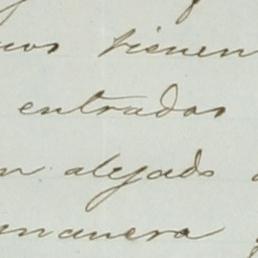 tienen
entrados
alejado
manera